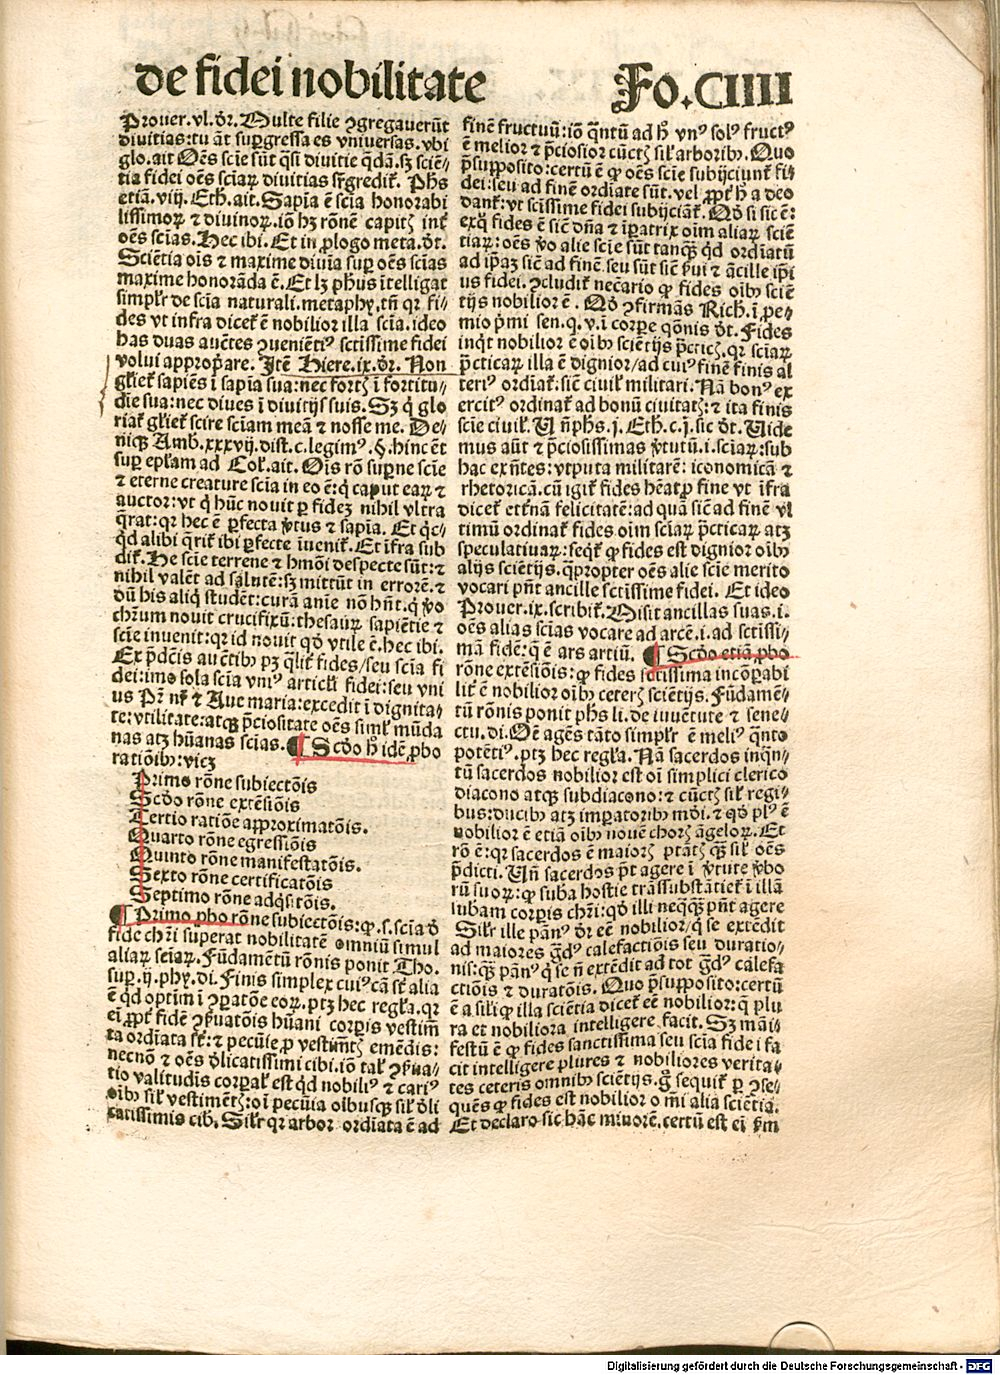 de fidei nobilitate
Fo.CIIII
Prouer.vl.dr̄.Multe filie ꝯgregauerūt
diuitias:tu āt suꝑgressa es vniuersas.vbi
glo.ait Oēs scīe sūt q̄si diuitie q̄dā.sꝫ sciē⸗
tia fidei oēs sciaꝝ diuitias sr̄gredit̉. Phs
etiā.viij. Eth.ait.Sapīa ē scīa honorabi
lissimoꝝ ⁊ diuinoꝝ.iō hꝫ rōnē capitꝭ int̉
oēs scīas.Hec ibi.Et in ꝓlogo meta.dr̄.
Sciētia oīs ⁊ maxime diuīa suꝑ oēs scīas
maxime honorāda ē.Et lꝫ phūs ītelligat
simplr̄ de scīa naturali.metaphy.tn̄ qr̄ fi⸗
des vt infra dicet̉ ē nobilior illa scīa.ideo
has duas auc̄tes ꝯueniēti⁹ sctīssime fidei
volui approp̄are. Itē Hiere.ix.dr̄. Non
gl̉iet̉ sapiēs ī sapīa sua:nec fortꝭ ī fortitu⸗
die sua:nec diues ī diuitijs suis. Sꝫ q̇ glo
riat̉ gl̉iet̉ scire sciam meā ⁊ nosse me. De⸗
niqꝫ Amb.xxxvij.dist.c.legim⁹.§.hinc ēt
suꝑ epl̄am ad Col̉.ait. Oīs rō suꝑne scīe
⁊ eterne creature scīa in eo ē:q̇ caput eaꝝ ⁊
auctor:vt q̇ hūc nouit ꝑ fideꝫ nihil vltra
q̄rat:qr̄ hec ē ꝑfecta v̉tus ⁊ sapīa. Et q̇c⸗
q̇d alibi q̄rit̉ ibi ꝑfecte īuenit̉.Et īfra sub
dit̉.He scīe terrene ⁊ hmōi despecte sūt:⁊
nihil valēt ad salutē:sꝫ mittūt in errorē.⁊
dū his aliq̇ studēt:curā anīe nō hn̄t.q̇ v̉o
chr̄um nouit crucifixū:thesauꝝ sapiētie ⁊
scīe inuenit:qr̄ id nouit qd̄ vtile ē.hec ibi.
Ex p̄dc̄is auc̄tibꝫ pꝫ q̄lit̉ fides/seu scīa fi
dei:imo sola scīa vni⁹ articl̄i fidei:seu vni
us Pr̄ nr̄ ⁊ Aue maria:excedit ī dignita⸗
te:vtilitate:atqꝫ p̄ciositate oēs siml̉ mūda
nas atꝫ hūanas scīas. ¶ Scd̄o h̄ idē ꝓbo
ratiōibꝫ:vicꝫ
Primo rōne subiectōis
Scd̄o rōne extēsiōis
Tertio ratiōe approximatōis.
Quarto rōne egressiōis
Quinto rōne manifestatōis.
Sexto rōne certificatōis
Septimo rōne adq̇sitōis.
¶ Primo ꝓbo rōne subiectōis:ꝙ.s.scīa d̄
fide chr̄i superat nobilitatē omniū simul
aliaꝝ sciaꝝ. Fūdamētū rōnis ponit Tho.
suꝑ.ij.phy.di. Finis simplex cui⁹cā sūt alia
ē q̇d optim̄ ī ꝯꝑatōe eoꝝ.ptꝫ hec regl̄a.qr̄
ei ꝓpt̉ fidē ꝯẜuatōis hūani corꝑis vestim̄
ta ordīata sūt:⁊ pecūie ꝓ vestim̄tꝭ emēdis:
necnō ⁊ oēs d̉licatissimi cibi.iō tal̉ ꝯẜua⸗
tio valitudīs corꝑal̉ est q̇d nobili⁹ ⁊ cari⁹
oībꝫ sil̉ vestimētꝭ:oī pecūia oībusqꝫ sil̉ d̉li
catissimis cib. Sil̉r qr̄ arbor ordīata ē ad
finē fructuū:iō q̄ntū ad h̄ vn⁹ sol⁹ fruct⁹
ē melior ⁊ p̄ciosior cūctꝭ sil̉ arboribꝫ. Quo
p̄supposito:certū ē ꝙ oēs scīe subijciunt̉ fi⸗
dei:seu ad finē ordīate sūt. vel ꝓpt̉ h̄ a deo
dant̉:vt sctīssime fidei subijciāt̉. Qd̄ si sic ē:
exq̇ fides ē sic̄ dn̄a ⁊ īꝑatrix oīm aliaꝝ sciē
tiaꝝ:oēs v̉o alie scīe sūt tanqꝫ q̇d ordīatū
ad ip̄aꝫ sic̄ ad finē.seu sūt sic̄ ẜui ⁊ ācille ip̄i
us fidei.ꝯcludit̉ nec̄ario ꝙ fides oībꝫ sciē
tijs nobilior ē. Qd̄ ꝯfirmās Rich.ī ꝓe⸗
mio p̄mi sen.q.v.ī corꝑe qōnis dt̄. Fides
inq̇t nobilior ē oībꝫ sciētijs p̄cticꝭ.qr̄ sciaꝝ
p̄cticaꝝ illa ē dignior/ad cui⁹ finē finis al
teri⁹ ordīat̉:sic̄ ciuil̉ militari. Nā bon⁹ ex
ercit⁹ ordinat̉ ad bonū ciuitatꝭ:⁊ ita finis
scīe ciuil̉. Un̄ phs.j. Eth.c.j.sic dt̄. Uide
mus aūt ⁊ p̄ciosissimas v̉tutū.i.sciaꝝ:sub
hac exn̄tes:vtputa militarē: iconomicā ⁊
rhetoricā.cū igit̉ fides hēat ꝓ fine vt īfra
dicet̉ etn̄ā felicitatē:ad quā sic̄ ad finē vl
timū ordinat̉ fides oīm sciaꝝ p̄cticaꝝ atꝫ
speculatiuaꝝ:seq̇t̉ ꝙ fides est dignior oībꝫ
alijs sciētijs.q̄propter oēs alie scīe merito
vocari pn̄t ancille sctīssime fidei. Et ideo
Prouer.ix.scribit̉. Misit ancillas suas.i.
oēs alias scīas vocare ad arcē.i.ad sctīssi⸗
mā fidē:q̄ ē ars artiū. ¶ Scd̄o etiā ꝓbo
rōne extēsiōis:ꝙ fides sctīssima incōꝑabi
lit̉ ē nobilior oībꝫ ceterꝭ sciētijs. Fūdamē⸗
tū rōnis ponit phs li.de iuuētute ⁊ sene⸗
ctu.di.Oē agēs tāto simplr̄ ē meli⁹ q̄nto
potēti⁹.ptꝫ hec regl̄a. Nā sacerdos inq̄n⸗
tū sacerdos nobilior est oī simplici clerico
diacono atqꝫ subdiacono:⁊ cūctꝭ sil̉ regi⸗
bus:ducibꝫ atꝫ imperatoribꝫ mōi.⁊ qd̄ pl⁹ ē
nobilior ē etiā oībꝫ nouē chorꝭ āgeloꝝ. Et
rō ē:qr̄ sacerdos ē maiorꝭ ptātꝭ qꝫ sil̉ oēs
p̄dicti. Un̄ sacerdos pt̄ agere ī v̉tute v̉bo
rū suoꝝ:ꝙ suba hostie trāssubstātiet̉ ī illā
subam corꝑis chr̄i:qd̄ illi neq̇qꝫ pn̄t agere
Sil̉r ille pān⁹ dr̄ eē nobilior/q̇ se extēdit
ad maiores g̊d⁹ calefactiōis seu duratio⸗
nis:qꝫ pān⁹ q̇ se n̄ extēdit ad tot g̊d⁹ calefa
ctiōis ⁊ duratōis. Quo p̄supposito:certū
ē a sil̉i ꝙ illa sciētia dicet̉ eē nobilior:q̄ plu
ra et nobiliora intelligere facit. Sꝫ māi⸗
festū ē ꝙ fides sanctissima seu scīa fidei fa
cit intelligere plures ⁊ nobiliores verita⸗
tes ceteris omnibꝫ sciētijs.g̊ sequit̉ ꝑ ꝯse⸗
quēs ꝙ fides est nobilior omi alia sciētia.
Et declaro sic hāc minorē.certū est eī ẜm